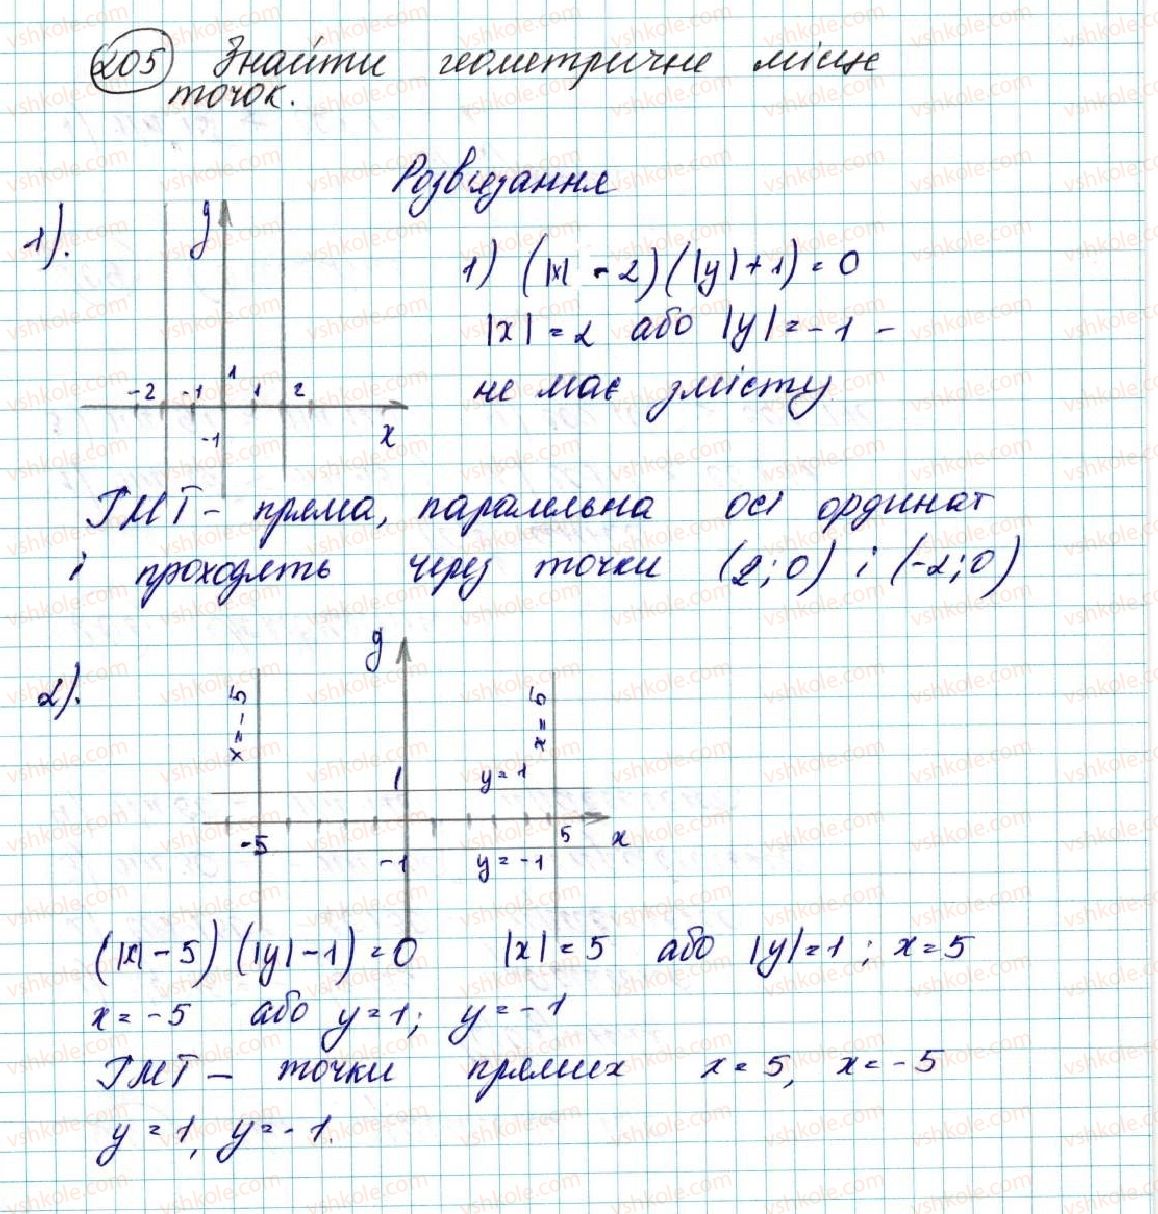 205 Знайти геометричне місце
точок.
Розв'язання
1).
y
-2 -1 1 1 2
-1
x
1) (|x| - 2)(|y| + 1) = 0
|x| = 2 або |y| = -1 -
не має змісту
ГМТ - пряма, паралельна осі ординат
і проходять через точки (2; 0) і (-2; 0)
2).
y
x = -5
x = 5
1
y = 1
-5
5
x
-1
y = -1
(|x| - 5) (|y| - 1) = 0 |x| = 5 або |y| = 1; x = 5
x = -5 або y = 1; y = -1
ГМТ - точки прямих x = 5, x = -5
y = 1, y = -1.